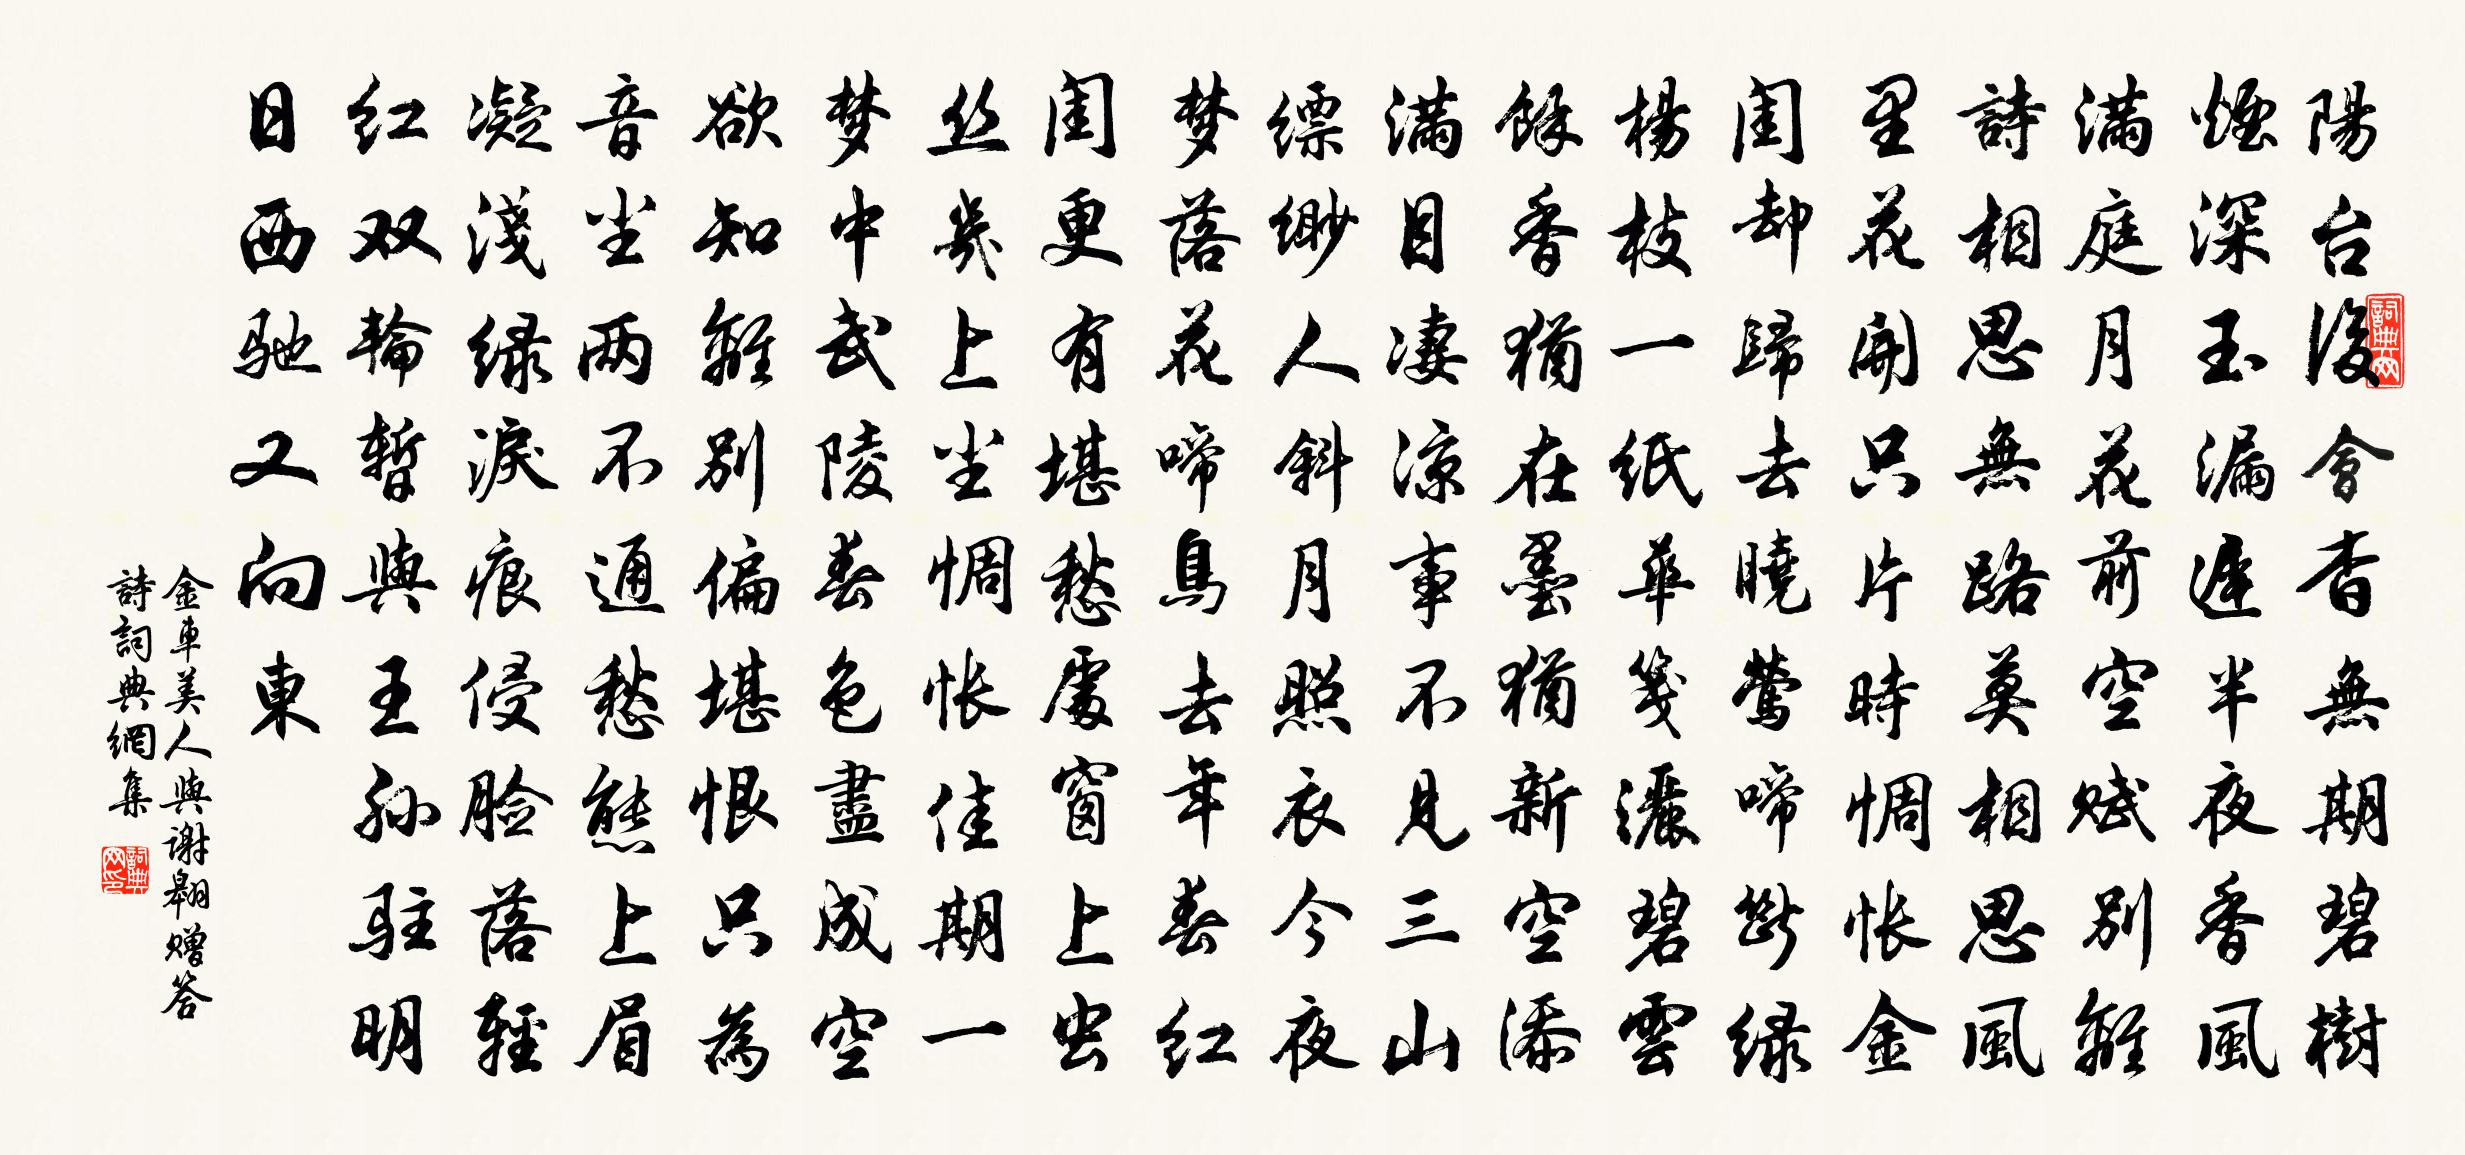 陽台後會杳無期碧樹
煙深玉漏遲半夜香風
滿庭月花前空賦別離
詩相思無路莫相思風
里花開只片時惆悵金
閨却歸去曉鶯啼斷绿
楊枝一紙華箋灑碧雲
餘香猶在墨猶新空添
滿目凄涼事不見三山
缥緲人斜月照衣今夜
梦落花啼鳥去年春红
閨更有堪愁處窗上虫
丝幾上尘惆悵佳期一
梦中武陵春色盡成空
欲知離別偏堪恨只為
音尘两不通愁態上眉
凝淺绿淚痕侵脸落輕
红双輪暫與王孙駐明
日西驰又向東
金車美人與謝翱赠答
詩詞典網集
詞典网
詞典网印